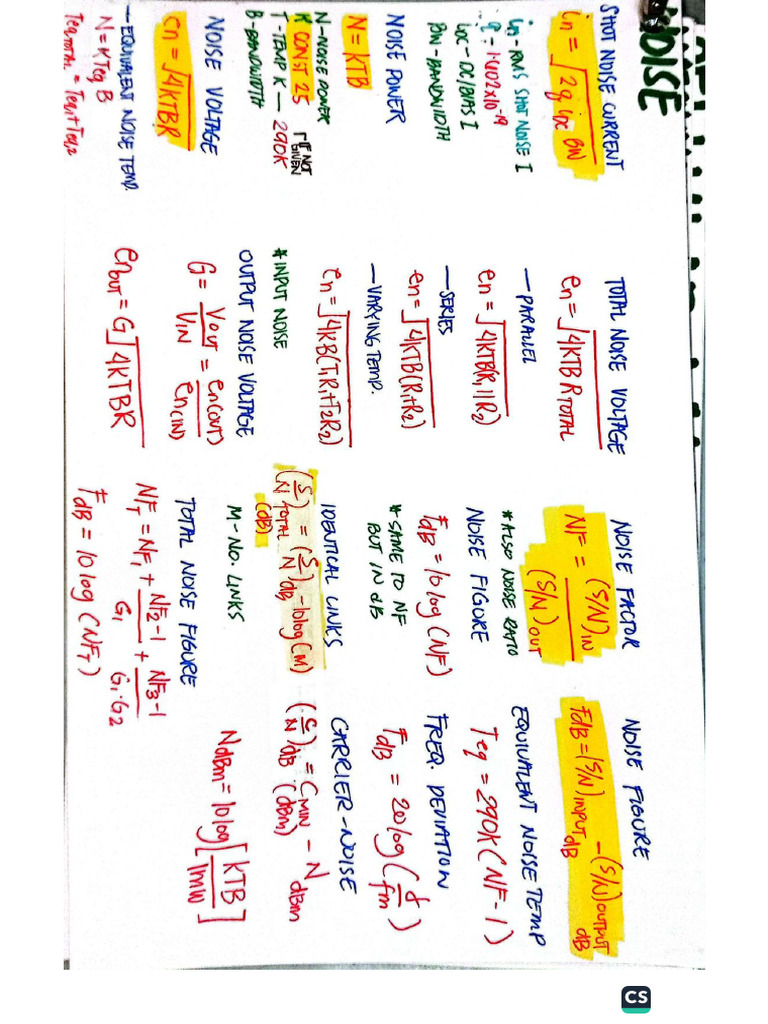 NOISE
SHOT NOISE CURRENT
in = √2q iDC BW
in - RMS SHOT NOISE I
q - 1.602x10^-19
iDC - DC/BIAS I
BW - BANDWIDTH
NOISE POWER
N = KTB
N - NOISE POWER
K CONST 25
T - TEMP. K — 290K
IF NOT GIVEN
B - BANDWIDTH
NOISE VOLTAGE
en = √4KTBR
— EQUIVALENT NOISE TEMP.
N = KTeq B
Teq TOTAL = Teq1 + Teq2
TOTAL NOISE VOLTAGE
en = √4KTB RTOTAL
— PARALLEL
en = √4KTB(R1||R2)
— SERIES
en = √4KTB(R1+R2)
— VARYING TEMP.
en = √4KB(T1R1+T2R2)
* INPUT NOISE
OUTPUT NOISE VOLTAGE
G = VOUT/VIN = en(OUT)/en(IN)
en OUT = G√4KTBR
NOISE FACTOR
NF = (S/N)IN / (S/N)OUT
* ALSO NOISE RATIO
NOISE FIGURE
FdB = 10 log (NF)
* SAME TO NF
BUT IN dB
IDENTICAL LINKS
(S/N)TOTAL (dB) = (S/N)dB - 10log(M)
M - NO. LINKS
TOTAL NOISE FIGURE
NFT = NF1 + NF2-1/G1 + NF3-1/G1·G2
FdB = 10 log (NFT)
NOISE FIGURE
FdB = (S/N)INPUT dB - (S/N)OUTPUT dB
EQUIVALENT NOISE TEMP
Teq = 290K (NF-1)
FREQ. DEVIATION
FdB = 20 log (d/fm)
CARRIER-NOISE
(C/N)dB = CMIN (dBm) - N dBm
NdBm = 10 log [KTB/1mW]
CS